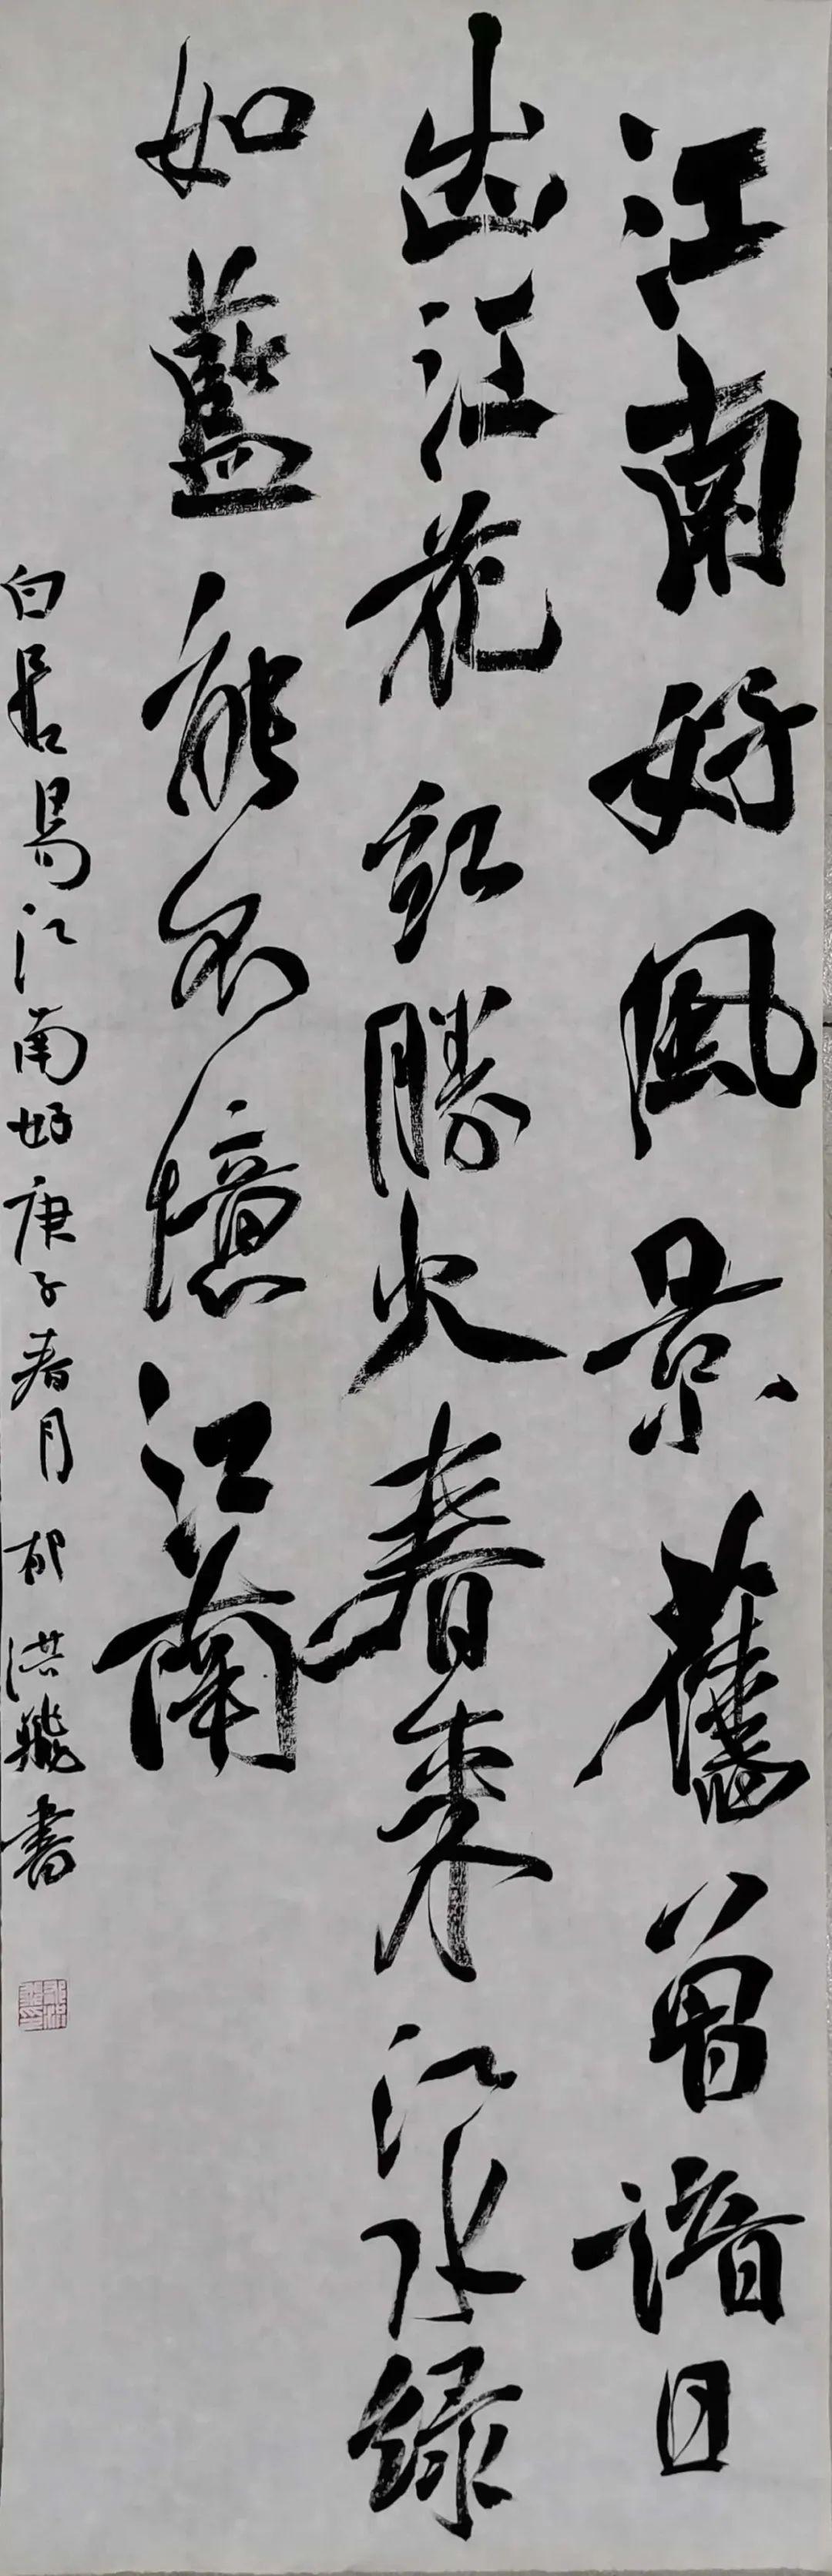 江南好風景舊曾諳日
出江花紅勝火春來江水綠
如藍能不憶江南
白居易江南好庚子春月郁洪飛書